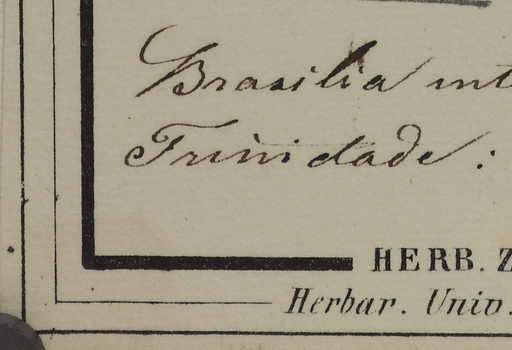 Brasilia int
Trinidade:
HERB. Z
Herbar. Univ.